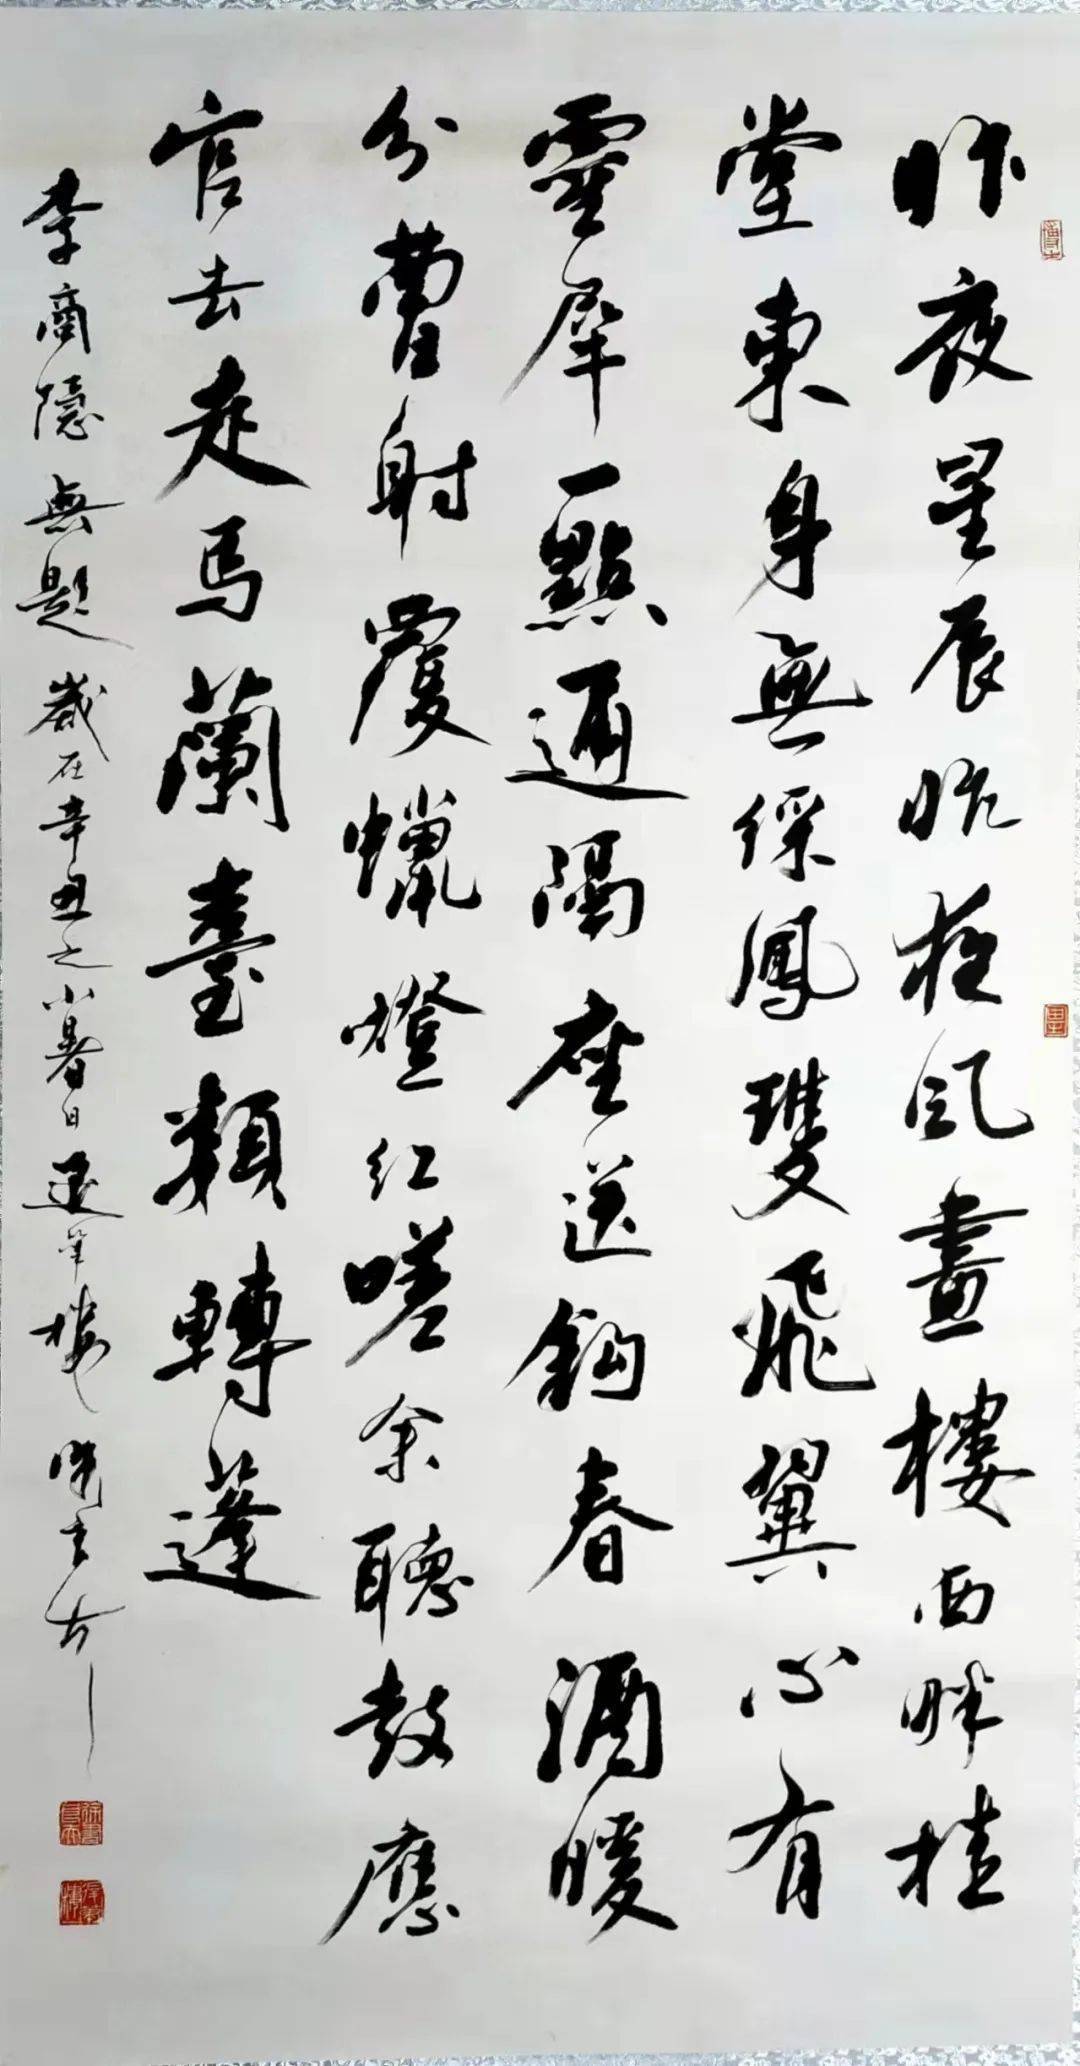 昨夜星辰昨夜風畫樓西畔桂
堂東身無綵鳳雙飛翼心有
靈犀一點通隔座送鈎春酒暖
分曹射覆蠟燈紅嗟余聽鼓應
官去走馬蘭臺類轉蓬
李商隱無題 歲在辛丑之小暑日退筆樓